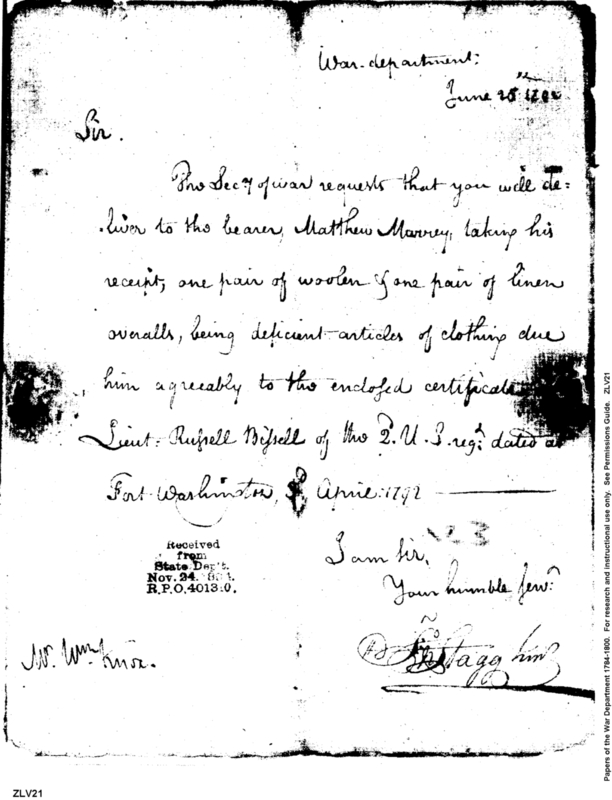 War-department:
June 25th 1792
Sir.
The Secy of war requests that you will de=
liver to the bearer, Matthew Marrey, taking his
receipt, one pair of woolen & one pair of linen
overalls, being deficient articles of clothing due
him agreeably to the enclosed certificate
Lieut. Russell Bissell of the 2. U.S. regt. dated at
Fort Washington, April 1792
I am Sir,
Your humble servt.
Received
from
State Dep't.
Nov. 24.
R.P.O. 4013
Stagg Junr
Mr. Wm. Knox.
Papers of the War Department 1784-1800. For research and instructional use only. See Permissions Guide. ZLV21
ZLV21